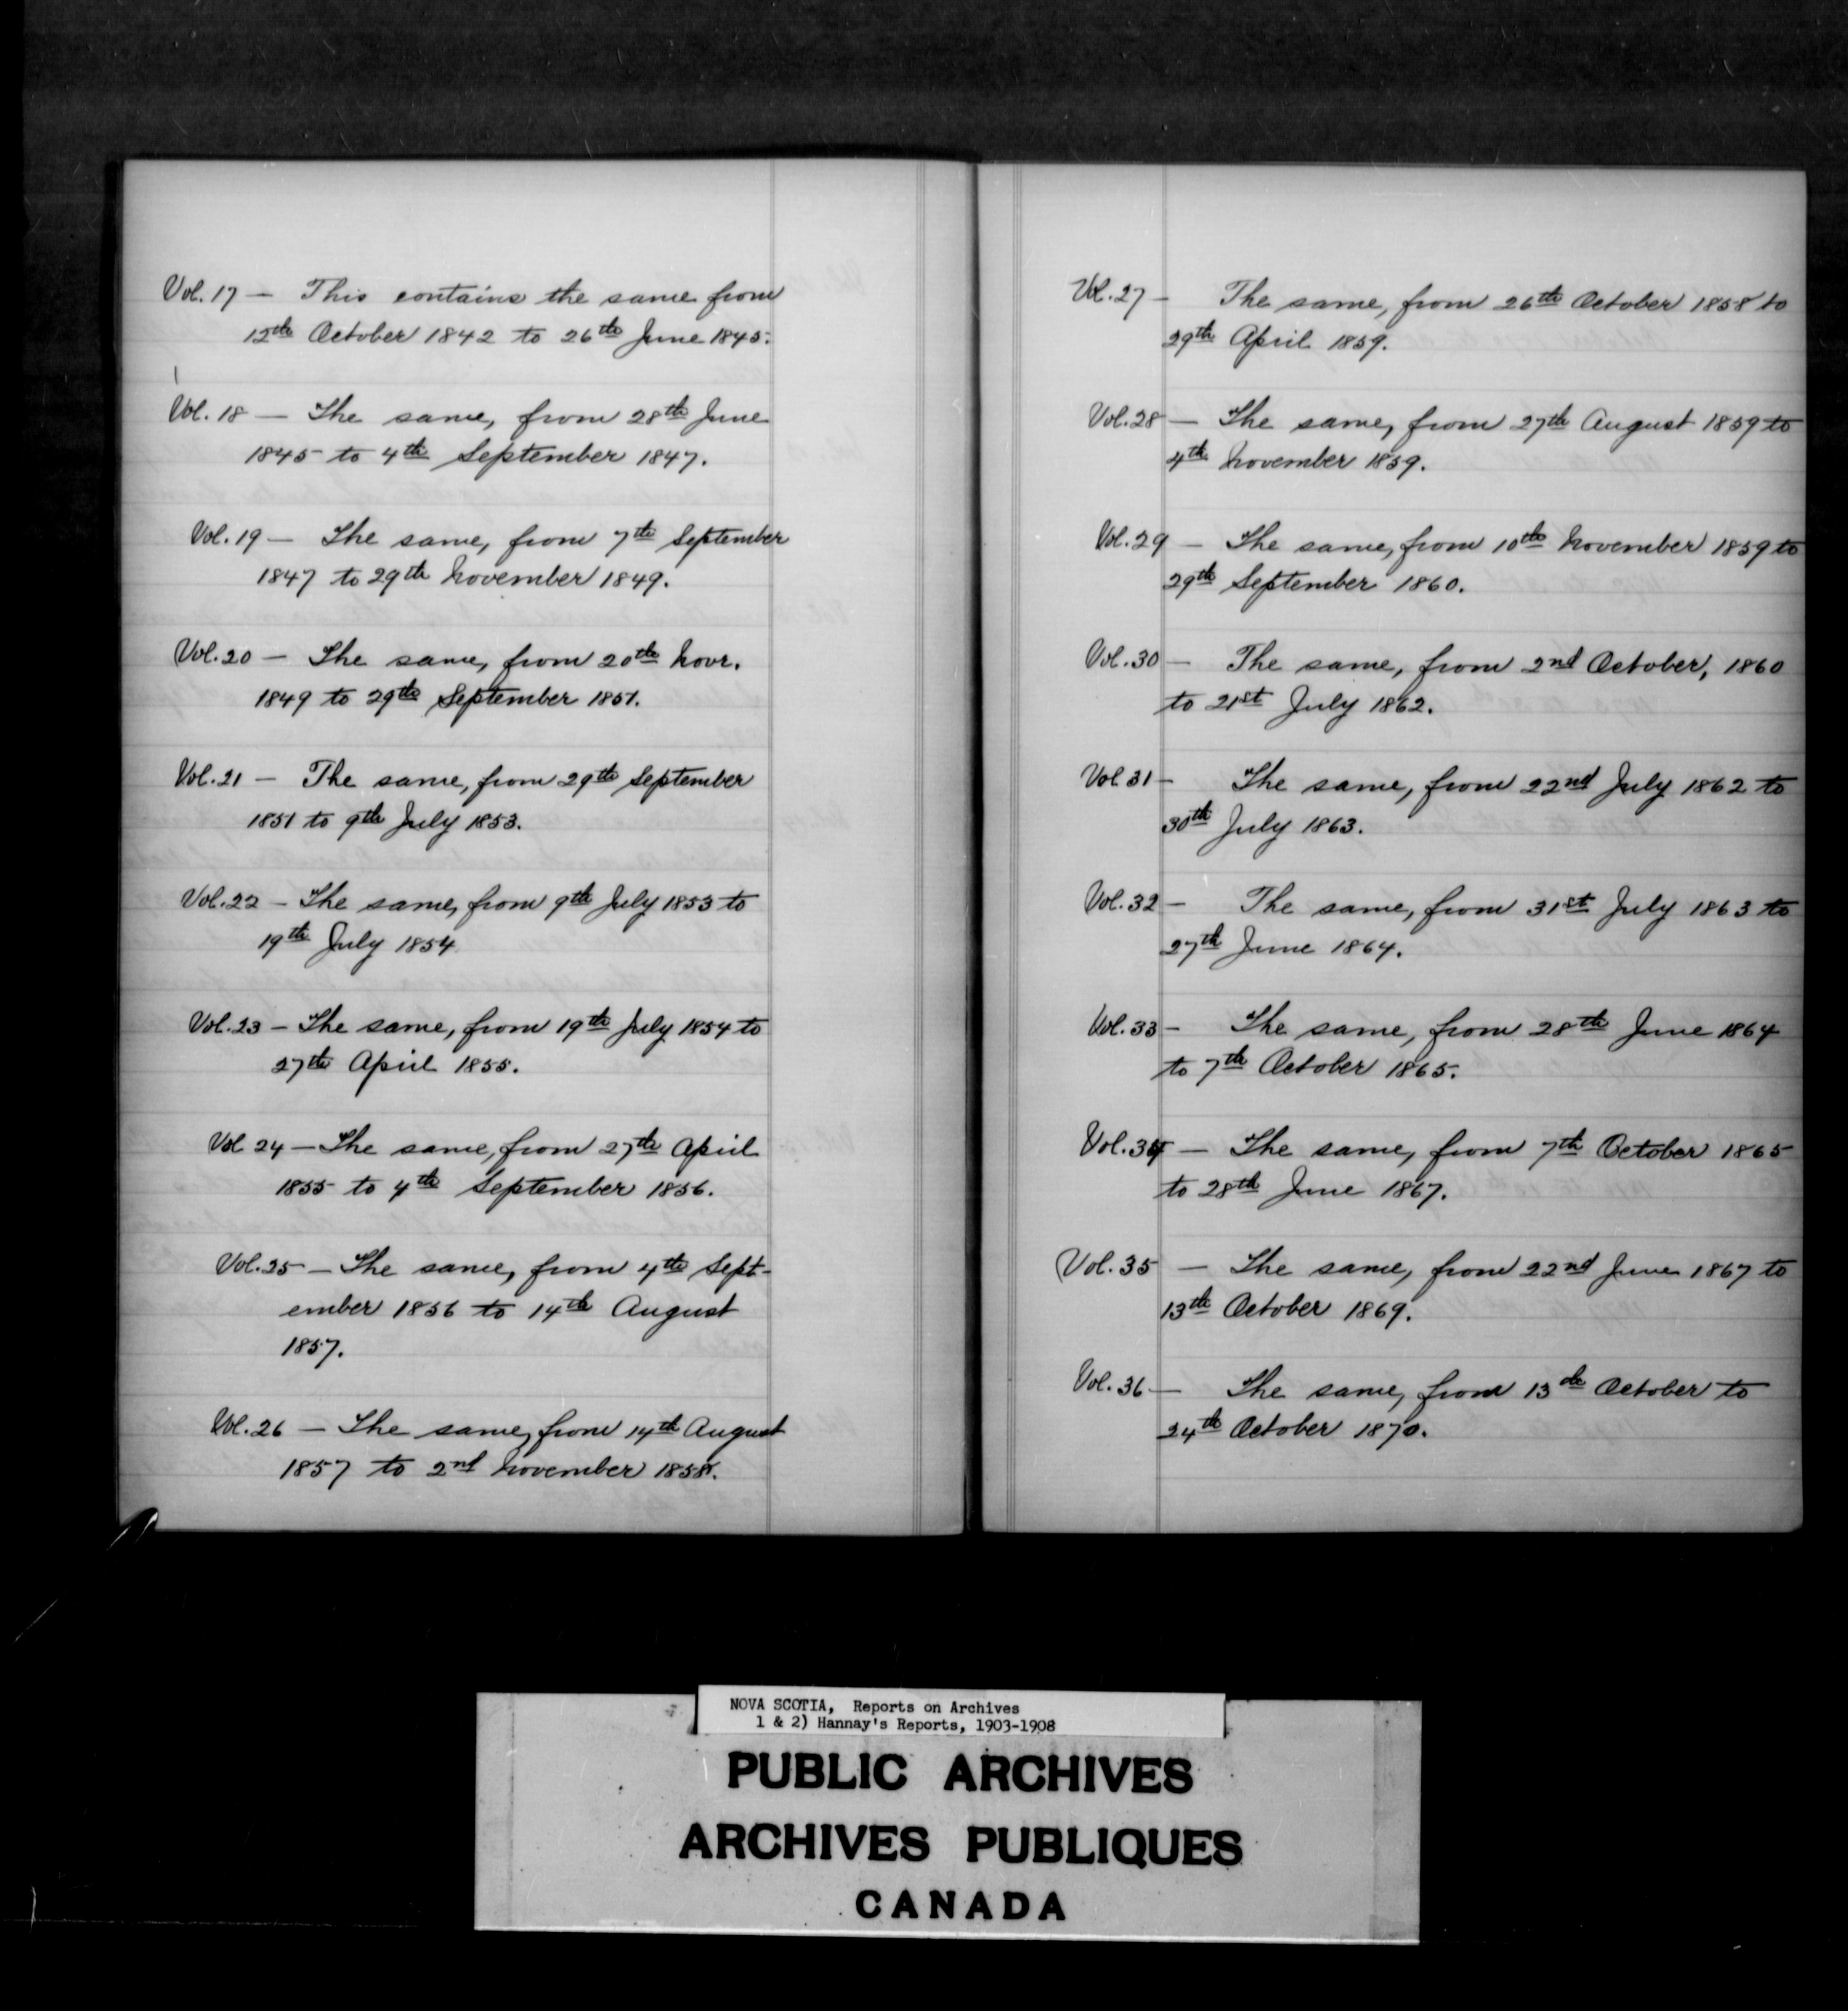 Vol. 17 — This contains the same from
12th October 1842 to 26th June 1845.
Vol. 18 — The same, from 28th June
1845 to 4th September 1847.
Vol. 19 — The same, from 7th September
1847 to 29th November 1849.
Vol. 20 — The same, from 20th Novr.
1849 to 29th September 1851.
Vol. 21 — The same, from 29th September
1851 to 9th July 1853.
Vol. 22 — The same, from 9th July 1853 to
19th July 1854
Vol. 23 — The same, from 19th July 1854 to
27th April 1855.
Vol 24 — The same, from 27th April
1855 to 4th September 1856.
Vol. 25 — The same, from 4th Sept-
ember 1856 to 14th August
1857.
Vol. 26 — The same, from 14th August
1857 to 2nd November 1858.
Vol. 27 — The same, from 26th October 1858 to
29th April 1859.
Vol. 28 — The same, from 27th August 1859 to
4th November 1859.
Vol. 29 — The same, from 10th November 1859 to
29th September 1860.
Vol. 30 — The same, from 2nd October, 1860
to 21st July 1862.
Vol 31 — The same, from 22nd July 1862 to
30th July 1863.
Vol. 32 — The same, from 31st July 1863 to
27th June 1864.
Vol. 33 — The same, from 28th June 1864
to 7th October 1865.
Vol. 34 — The same, from 7th October 1865
to 28th June 1867.
Vol. 35 — The same, from 22nd June 1867 to
13th October 1869.
Vol. 36 — The same, from 13th October to
24th October 1870.
NOVA SCOTIA, Reports on Archives
1 & 2) Hannay's Reports, 1903-1908
PUBLIC ARCHIVES
ARCHIVES PUBLIQUES
CANADA